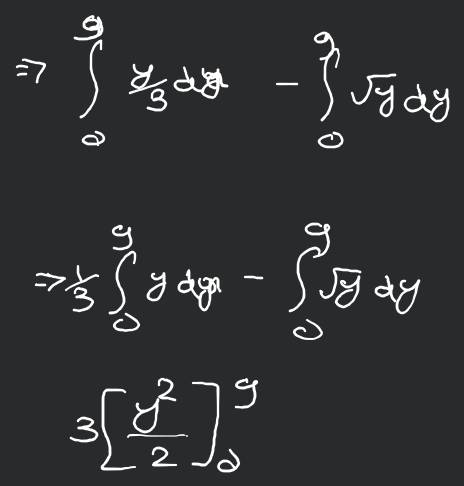 ⇒ ∫₀⁹ y/3 dy - ∫₀⁹ √y dy
⇒ 1/3 ∫₀⁹ y dy - ∫₀⁹ √y dy
3[y²/2]₀⁹